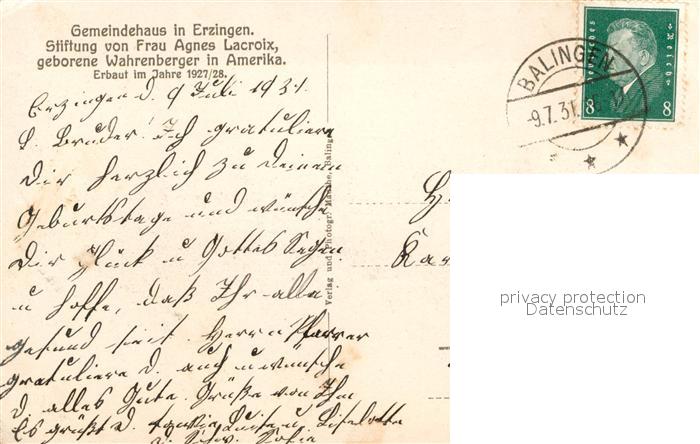 Gemeindehaus in Erzingen.
Stiftung von Frau Agnes Lacroix,
geborene Wahrenberger in Amerika.
Erbaut im Jahre 1927/28.
Erzingen d. 9 Juli 1931.
L. Bruder! Ich gratuliere
Dir herzlich zu Deinem
Geburtstage und wünsche
Dir Glück u Gottes Segen
u hoffe, daß Ihr alle
gesund seit. Herrn Pfarrer
gratuliere d. auch u wünsche
d. alles Gute. Grüße von Ihm
Es grüßt d. Luise u. Liselotte
Verlag und Photogr. Balingen
Deutsches Reich
8 8
BALINGEN
-9.7.31.
H
Kar
privacy protection
Datenschutz